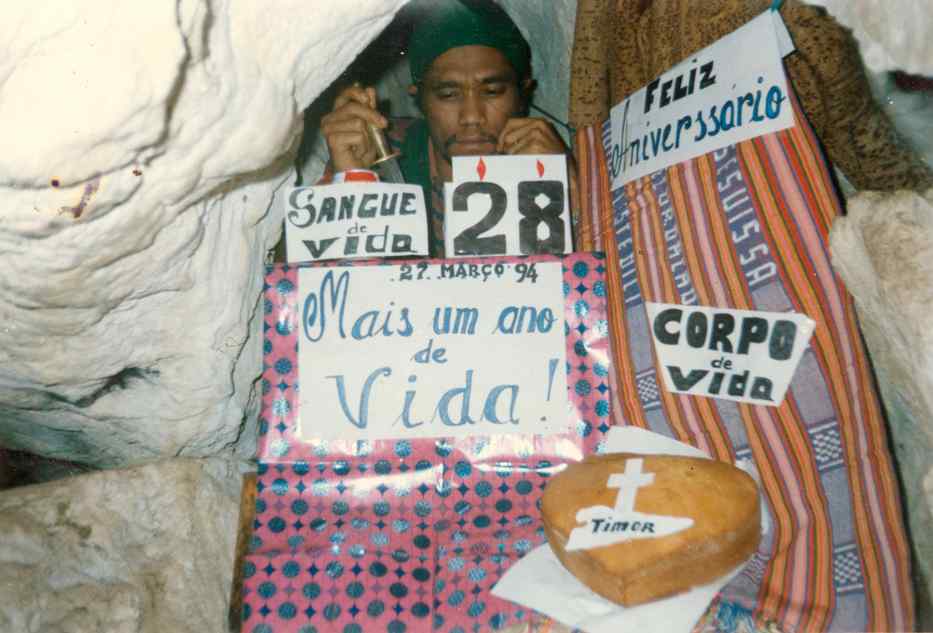 FELIZ
Aniverssário
SANGUE
de
VIDA
28
27 MARÇO 94
Mais um ano
de
Vida!
CORPO
de
VIDA
Timor